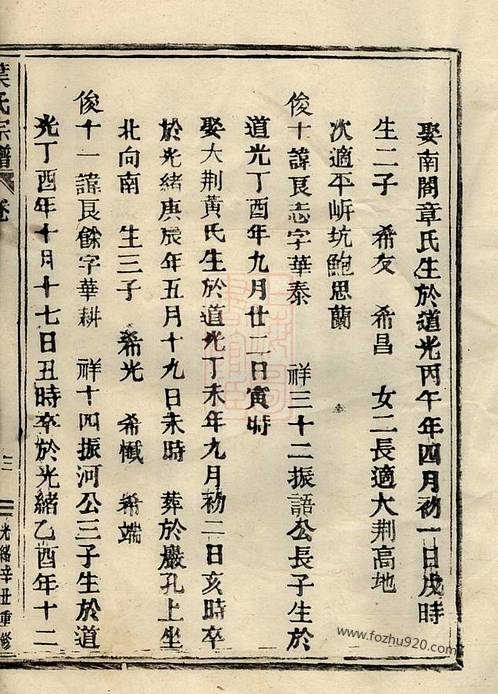 娶南閣章氏生於道光丙午年四月初一日戌時
生二子　希友　希昌　女二長適大荆高地
次適平岍坑鮑思蘭
俊十諱良志字華泰　祥三十二振語公長子生於
道光丁酉年九月廿二日寅時
娶大荆黃氏生於道光丁未年九月初二日亥時卒
於光緒庚辰年五月十九日未時　葬於巖孔上坐
北向南　生三子　希光　希懴　希端
俊十一諱良餘字華耕　祥十四振河公三子生於道
光丁酉年十月十七日丑時卒於光緒乙酉年十二
葉氏宗譜　卷　三　光緒辛丑重修
www.fozhu920.com